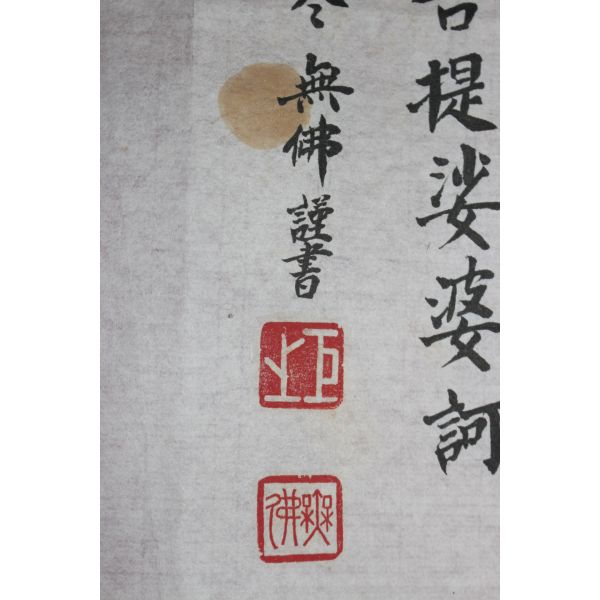 提娑婆訶
無佛謹書
無佛